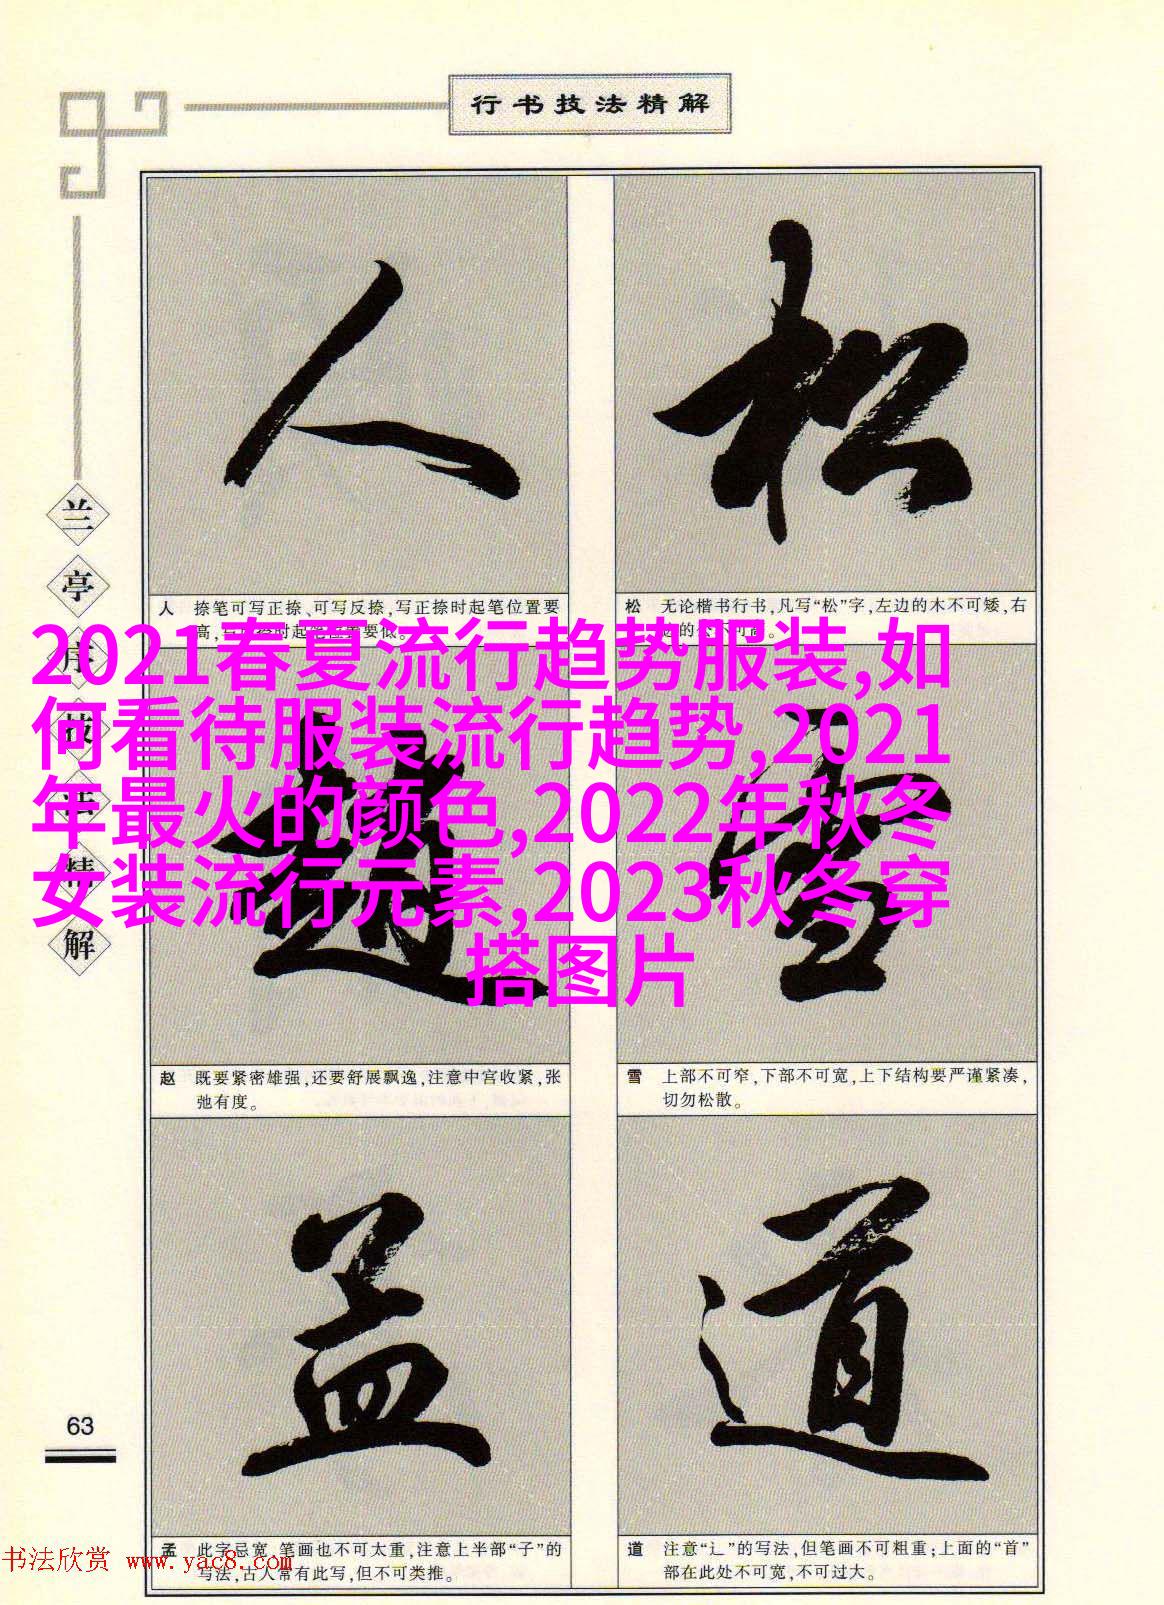 行书技法精解
人
松
人 捺笔可写正捺、可写反捺,写正捺时起笔位置要
高,
松 无论楷书行书,凡写“松”字,左边的木不可矮,右
2021春夏流行趋势服装,如
何看待服装流行趋势,2021
年最火的颜色,2022年秋冬
女装流行元素,2023秋冬穿
搭图片
赵
雪
赵 既要紧密雄强,还要舒展飘逸,注意中宫收紧,张
弛有度。
雪 上部不可窄,下部不可宽,上下结构要严谨紧凑,
切勿松散。
孟
道
孟 此字忌宽,笔画也不可太重,注意上半部“子”的
写法,古人常有此写,但不可类推。
道 注意“辶”的写法,但笔画不可粗重;上面的“首”
部在此处不可宽,不可过大。
兰亭序技法精解
63
书法欣赏 www.yac8.com